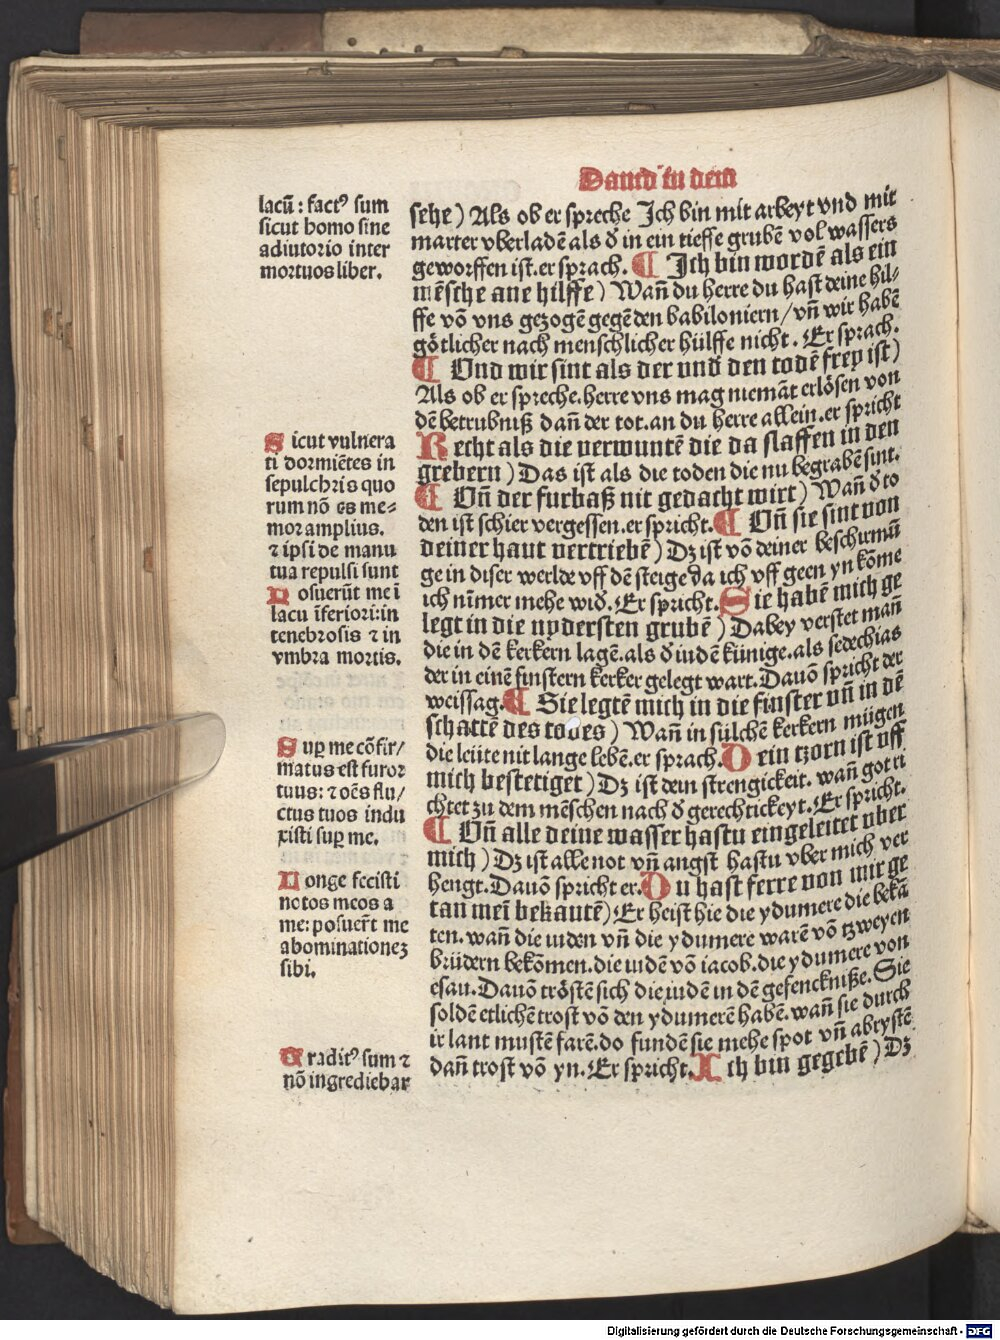 Dauid in dem
lacū : fact⁹ sum
sicut homo sine
adiutorio inter
mortuos liber.
Sicut vulnera
ti dormiētes in
sepulchris quo
rum nō es me⸗
mor amplius.
⁊ ipsi de manu
tua repulsi sunt
Posuerūt me ī
lacu īferiori: in
tenebrosis ⁊ in
vmbra mortis.
Sup̱ me cōfir/
matus est furor
tuus: ⁊ oēs flu/
ctus tuos indu
xisti sup̱ me.
Longe fecisti
notos meos a
me: posuer̄t me
abominationeꝫ
sibi.
Tradit⁹ sum ⁊
nō ingrediebar
sehe) Als ob er spreche Ich bin mit arbeyt vnd mit
marter vberladē als d̛ in ein tieffe grubē vol wassers
geworffen ist. er sprach. ¶ Ich bin wordē als ein
mēsche ane hilffe) Wan̄ du herre du hast deine hil⸗
ffe vō vns gezogē gegē den babiloniern/vn̄ wir habē
götlicher nach menschlicher hülffe nicht. Er sprach.
¶ Vnd wir sint als der vnd̛ den todē frey ist)
Als ob er spreche. herre vns mag niemāt erlösen von
dē betrubniß dan̄ der tot. an du herre allein. er spricht
Recht als die verwuntē die da slaffen in den
grebern) Das ist als die toden die nu begrabē sint.
¶ Vn̄ der furbaß nit gedacht wirt) Wan̄ d̛ to
den ist schier vergessen. er spricht. ¶ Vn̄ sie sint von
deiner hant vertriebē) Dꝫ ist vō deiner beschirmū
ge in diser werlde vff dē steige da ich vff geen yn kōme
ich nīmer mehe wid̛. Er spricht. Sie habē mich ge
legt in die nydersten grubē) Dabey verstet man̄
die in dē kerkern lagē. als d̛ iudē künige. als sedechias
der in einē finstern kerker gelegt wart. Dauō spricht der
weissag. ¶ Sie legtē mich in die finster vn̄ in dē
schattē des todes) Wan̄ in sülchē kerkern mügen
die leüte nit lange lebē. er sprach. Dein tzorn ist vff
mich bestetiget) Dꝫ ist dein strengickeit. wan̄ got ri
chtet zu dem mēschen nach d̛ gerechtickeyt. Er spricht.
¶ Vn̄ alle deine wasser hastu eingeleitet vber
mich) Dꝫ ist alle not vn̄ angst hastu vber mich ver
hengt. Dauō spricht er. Du hast ferre von mir ge
tan mei̅ bekantē) Er heist hie die ydumere die bekā
ten. wan̄ die iuden vn̄ die ydumere warē vō tzweyen
brüdern bekōmen. die iudē vō iacob. die ydumere von
esau. Dauō tröstē sich die iudē in dē gefenckniße. Sie
soldē etlichē trost vō den ydumerē habē. wan̄ sie durch
ir lant mustē farē. do fundē sie mehe spot vn̄ abrystē
dan̄ trost vō yn. Er spricht. Ich bin gegebē) Dꝫ
Digitalisierung gefördert durch die Deutsche Forschungsgemeinschaft - DFG